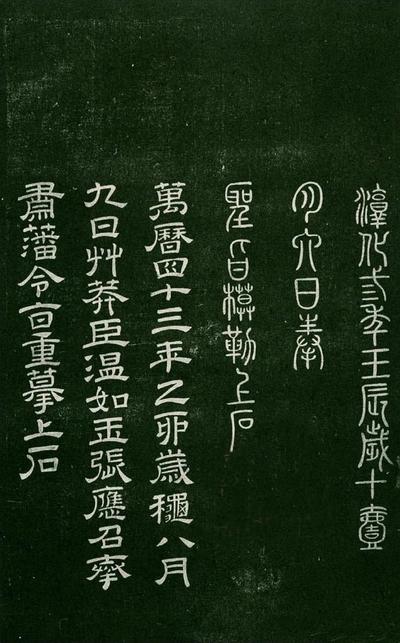 淳化弎年壬辰歲十壹
月六日奉
聖旨模勒上石
萬曆四十三年乙卯歲穐八月
九日艸莽臣溫如玉張應召奉
肅藩令旨重摹上石